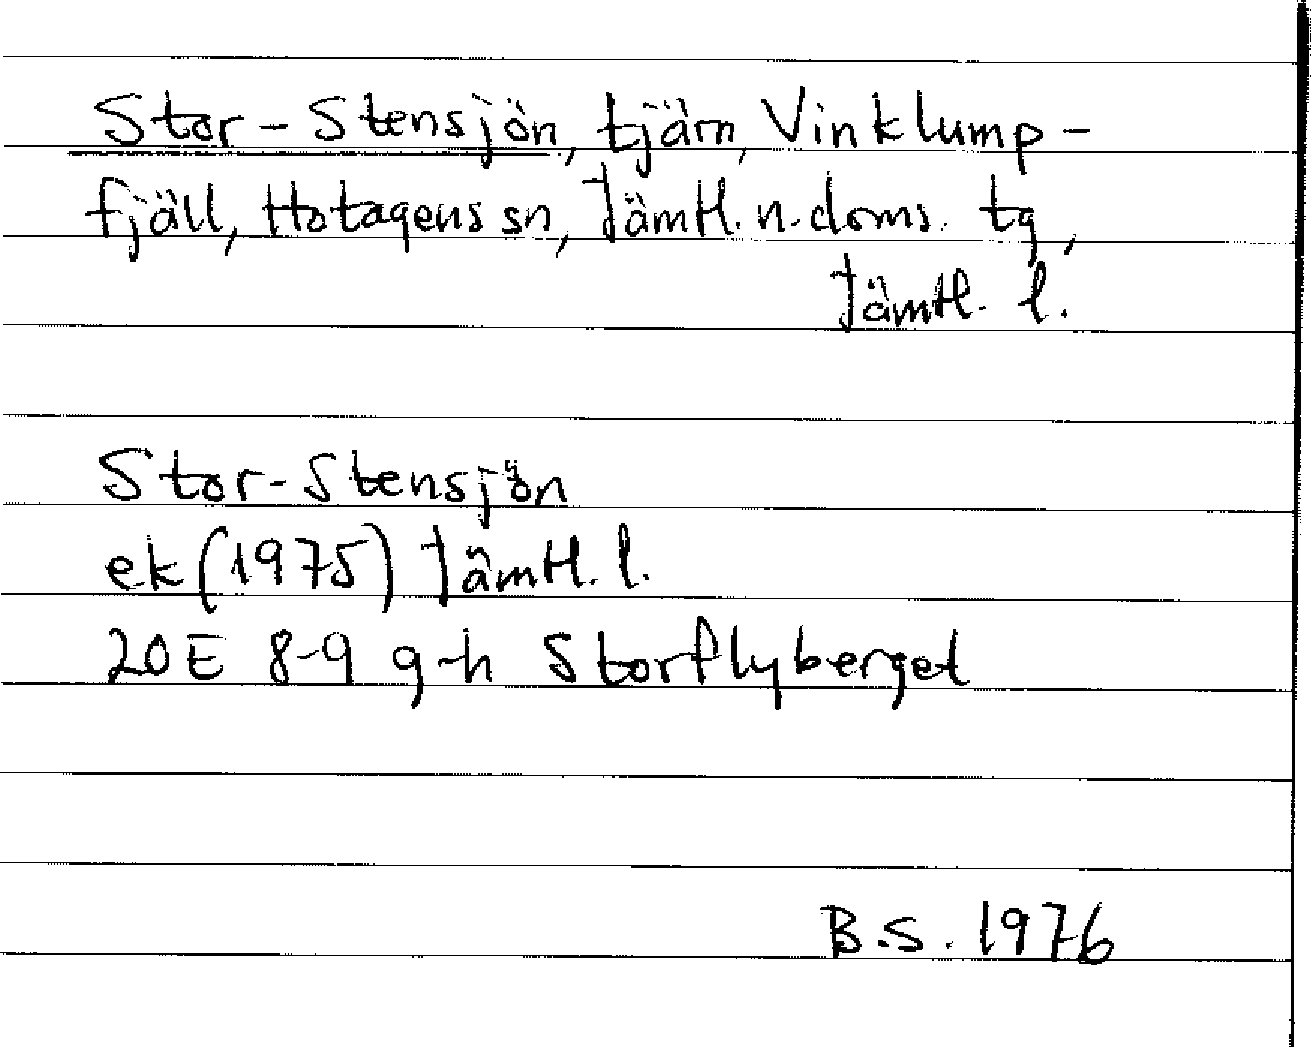 Stor-Stensjön, tjärn, Vinklump-
fjäll, Hotagens sn, Jämtl. n. doms. tg,
Jämtl. l.
Stor-Stensjön
ek (1975) Jämtl. l.
20E 8-9 g-h Storflyberget
B.S. 1976